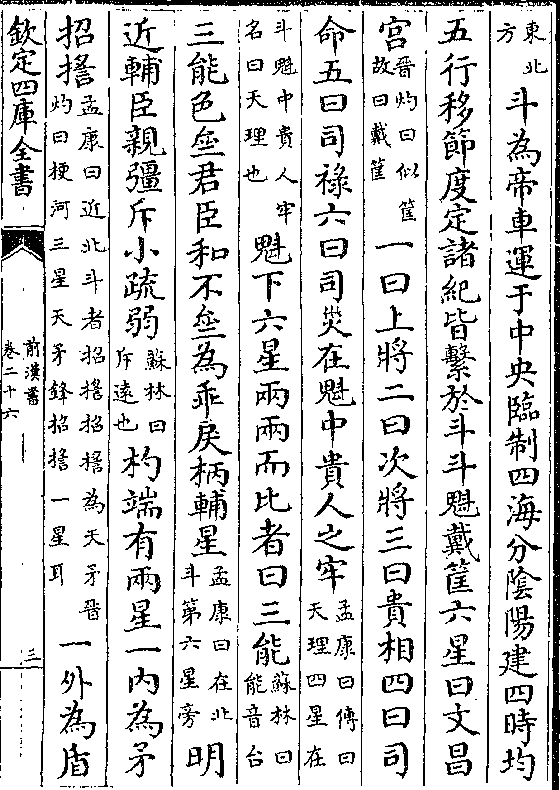 東北方斗為帝車運于中央臨制四海分陰陽建四時均
五行移節度定諸紀皆繫於斗斗魁戴筐六星曰文昌
宮晉灼曰似筐故曰戴筐一曰上將二曰次將三曰貴相四曰司
命五曰司祿六曰司災在魁中貴人之牢孟康曰傳曰天理四星在
斗魁中貴人牢名曰天理也魁下六星兩兩而比者曰三能蘇林曰能音台
三能色𠫵君臣和不𠫵為乖戾柄輔星孟康曰在北斗第六星旁明
近輔臣親彊斥小疏弱蘇林曰斥遠也杓端有兩星一內為矛
招搖孟康曰近北斗者招搖招搖為天矛晉灼曰梗河三星天矛鋒招搖一星耳一外為盾
欽定四庫全書
前漢書
卷二十六
三